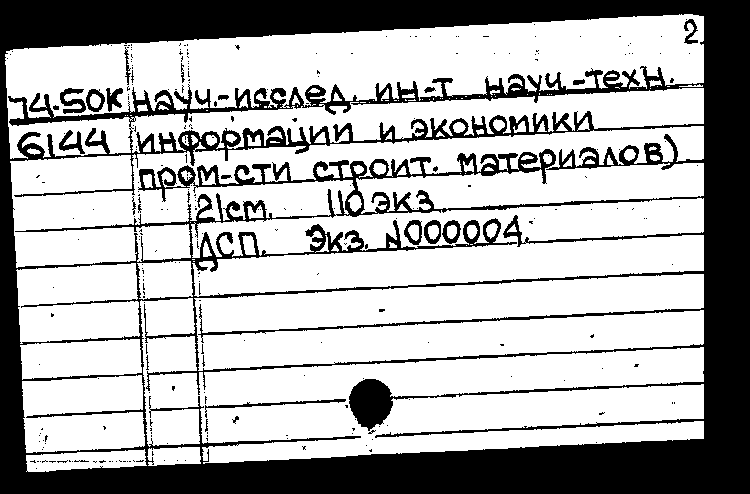 2
74-50К науч.-исслед. ин-т науч.-техн.
6144 информации и экономики
пром-сти строит. материалов)
21см. 110 экз.
ДСП. Экз. N000004.